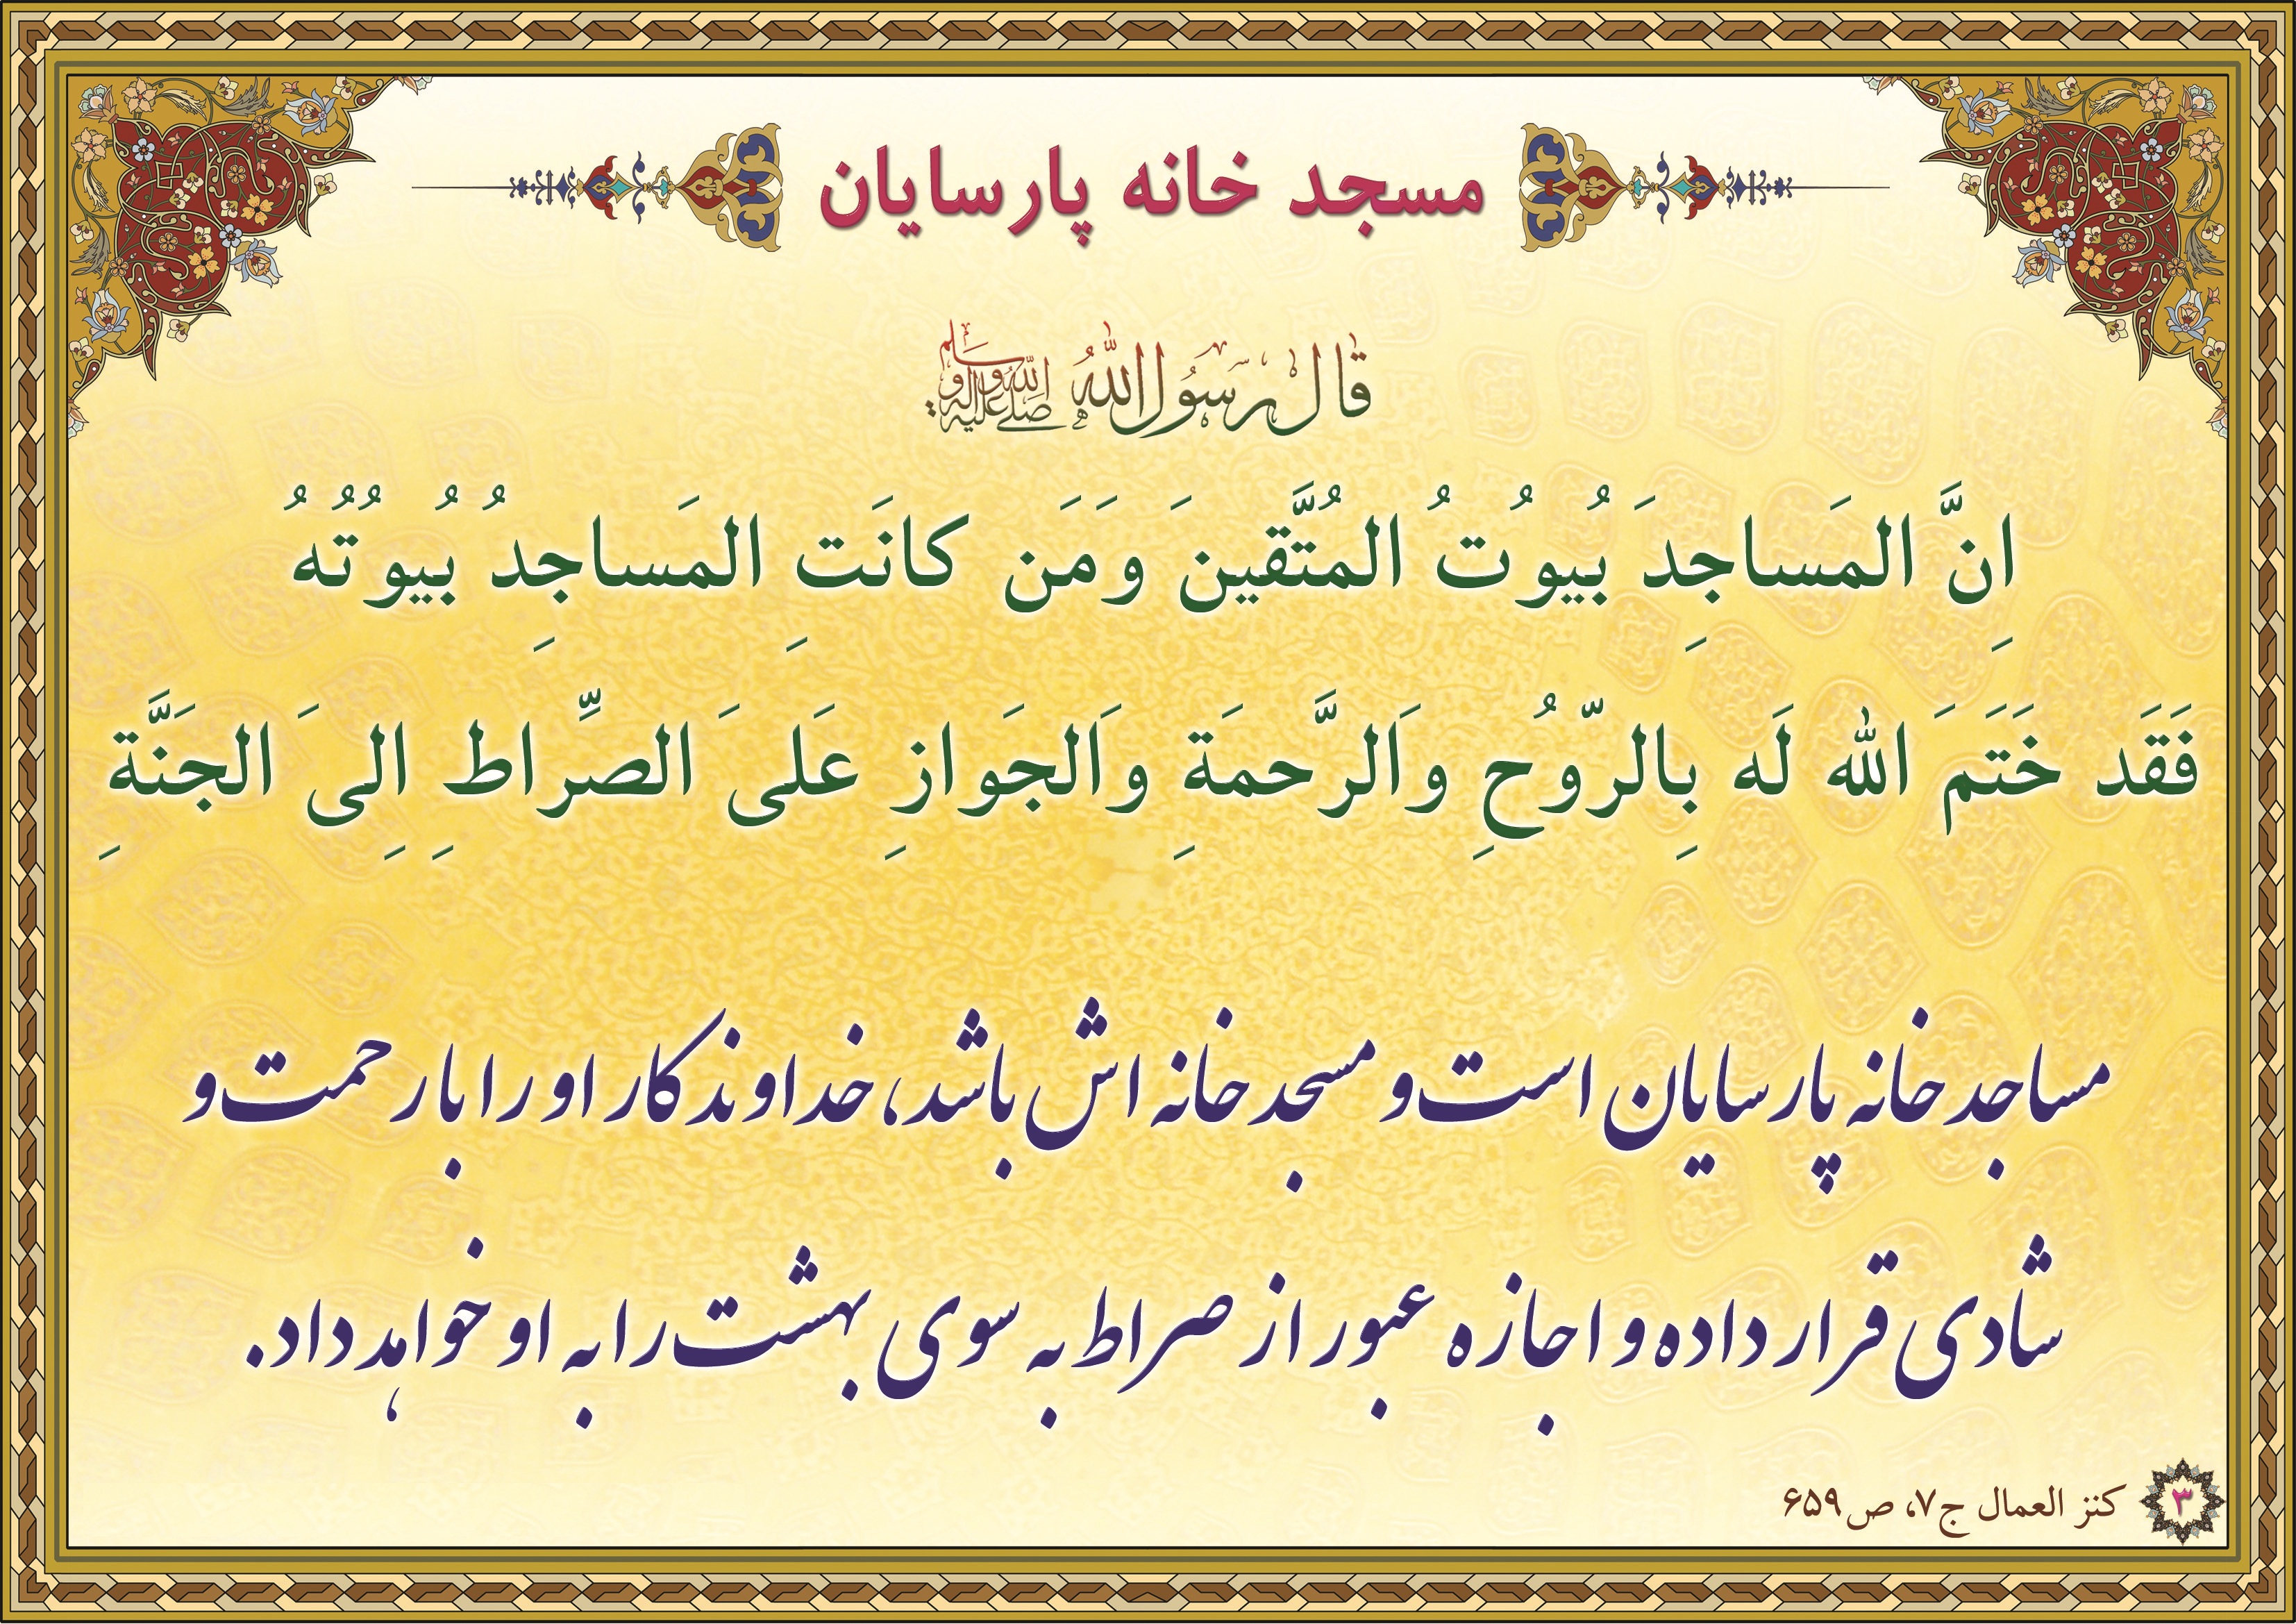 مسجد خانه پارسایان
قال رسول الله صلی الله علیه وآله وسلم
اِنَّ المَساجِدَ بُیوُتُ المُتَّقینَ وَمَن کانَتِ المَساجِدُ بُیوُتُهُ
فَقَد خَتَمَ الله لَه بِالرّوُحِ وَالرَّحمَةِ وَالجَوازِ عَلیَ الصِّراطِ اِلیَ الجَنَّةِ
مساجد خانه پارسایان است و مسجد خانه اش باشد، خداوند کار او را با رحمت و
شادی قرار داده و اجازه عبور از صراط به سوی بهشت را به او خواهد داد.
۳ کنز العمال ج۷، ص۶۵۹